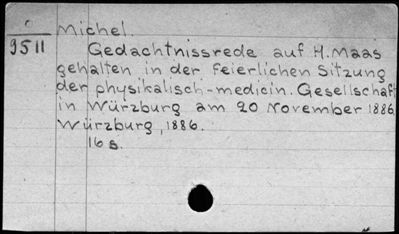 c Michel.
9511 Gedachtnissrede auf H. Maas
gehalten in der feierlichen Sitzung
der physikalisch-medicin. Gesellschaft
in Würzburg am 20 November 1886
Würzburg, 1886.
16 s.